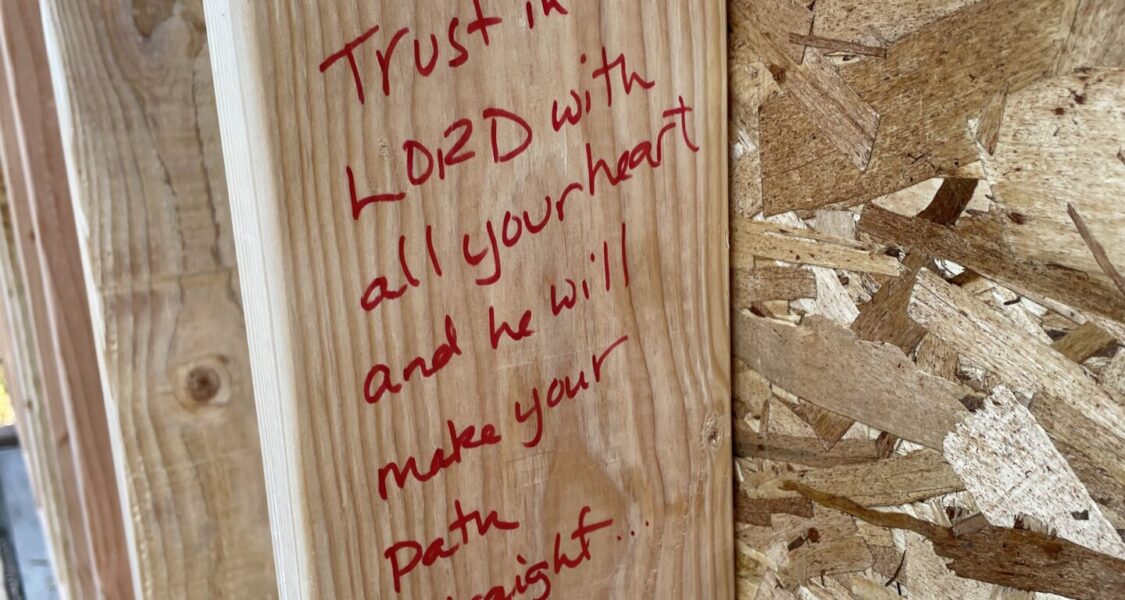 Trust in
LORD with
all your heart
and he will
make your
path
straight..